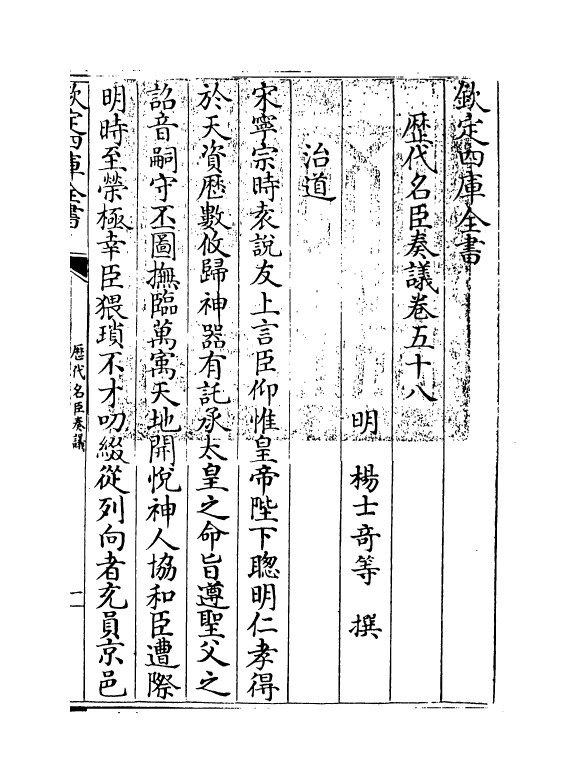 欽定四庫全書
歴代名臣奏議卷五十八
明　楊士奇等　撰
治道
宋寧宗時袁說友上言臣仰惟皇帝陛下聰明仁孝得
於天資歴數攸歸神器有託承太皇之命旨遵聖父之
詔音嗣守丕圖撫臨萬寓天地開悅神人協和臣遭際
明時至榮極幸臣猥瑣不才叨綴從列向者充員京邑
欽定四庫全書
歴代名臣奏議
一